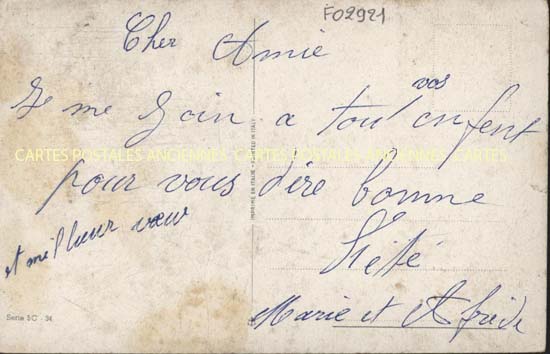 FO2921
Cher Amie
Je me Join a tout vos enfent
CARTES POSTALES ANCIENNES CARTES POSTALES ANCIENNES CARTES POSTALES ANCIENNES
pour vous dire bonne
fiété
et meilleur vœux
Marie et
IMPRIMÉ EN ITALIE - PRINTED IN ITALY
Serie SC - 34